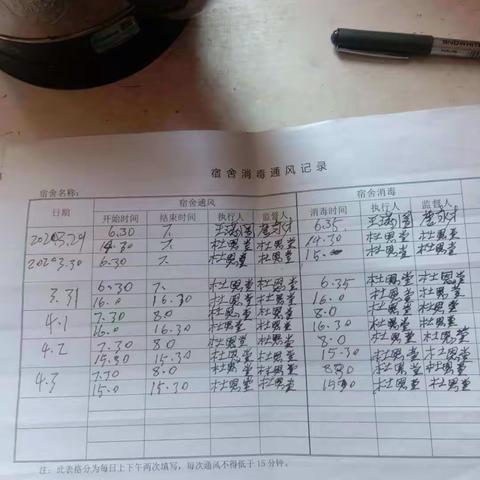 SNOWHITE
宿舍消毒通风记录
宿舍名称:
日期 宿舍通风 宿舍消毒
开始时间 结束时间 执行人 监督人 消毒时间 执行人 监督人
2020.3.29 6.30 7. 6.35
14.30 7. 杜恩堂 杜恩堂 14.30 杜恩堂 杜恩堂
2020.3.30 6.30 7. 杜恩堂 杜恩堂 杜恩堂 杜恩堂
3.31 6.30 7. 杜恩堂 杜恩堂 6.35 杜恩堂 杜恩堂
16.0 16.30 杜恩堂 杜恩堂 16.0 杜恩堂 杜恩堂
4.1 7.30 8.0 杜恩堂 杜恩堂 8.0 杜恩堂 杜恩堂
16.0 16.30 杜恩堂 杜恩堂 16.30 杜恩堂 杜恩堂
4.2 7.30 8.0 杜恩堂 杜恩堂 8.0 杜恩堂 杜恩堂
15.30 杜恩堂 杜恩堂 15.30 杜恩堂 杜恩堂
4.3 7.30 8.0 杜恩堂 杜恩堂 杜恩堂 杜恩堂
15.0 15.30 杜恩堂 杜恩堂 杜恩堂 杜恩堂
注:此表格分为每日上下午两次填写,每次通风不得低于15分钟。